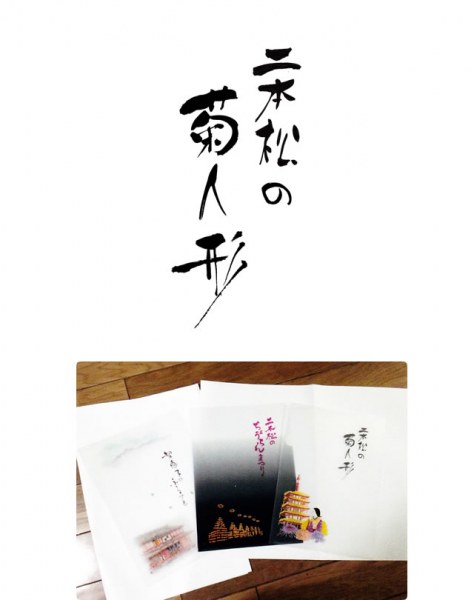 二本松の
菊人形
二本松の
ちょうちんまつり
二本松の
菊人形